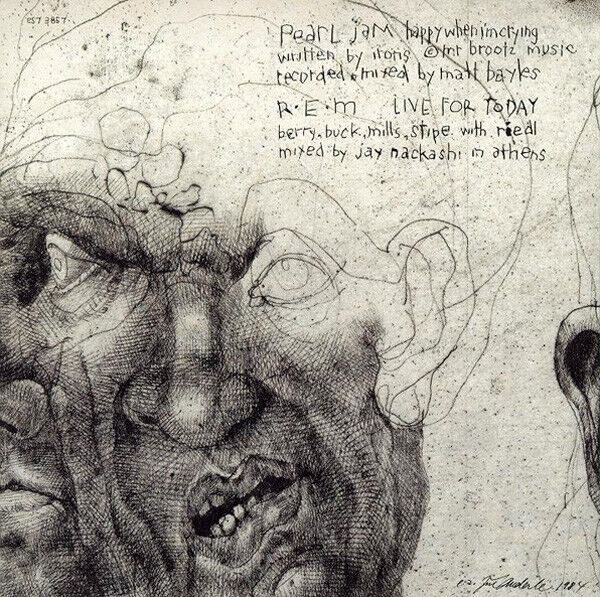 es7 3857
PEARL JAM happy when i'm crying
written by irons © mr brootz music
recorded & mixed by matt bayles
R•E•M LIVE FOR TODAY
berry, buck, mills, stipe with riedl
mixed by jay nackashi in athens
1984